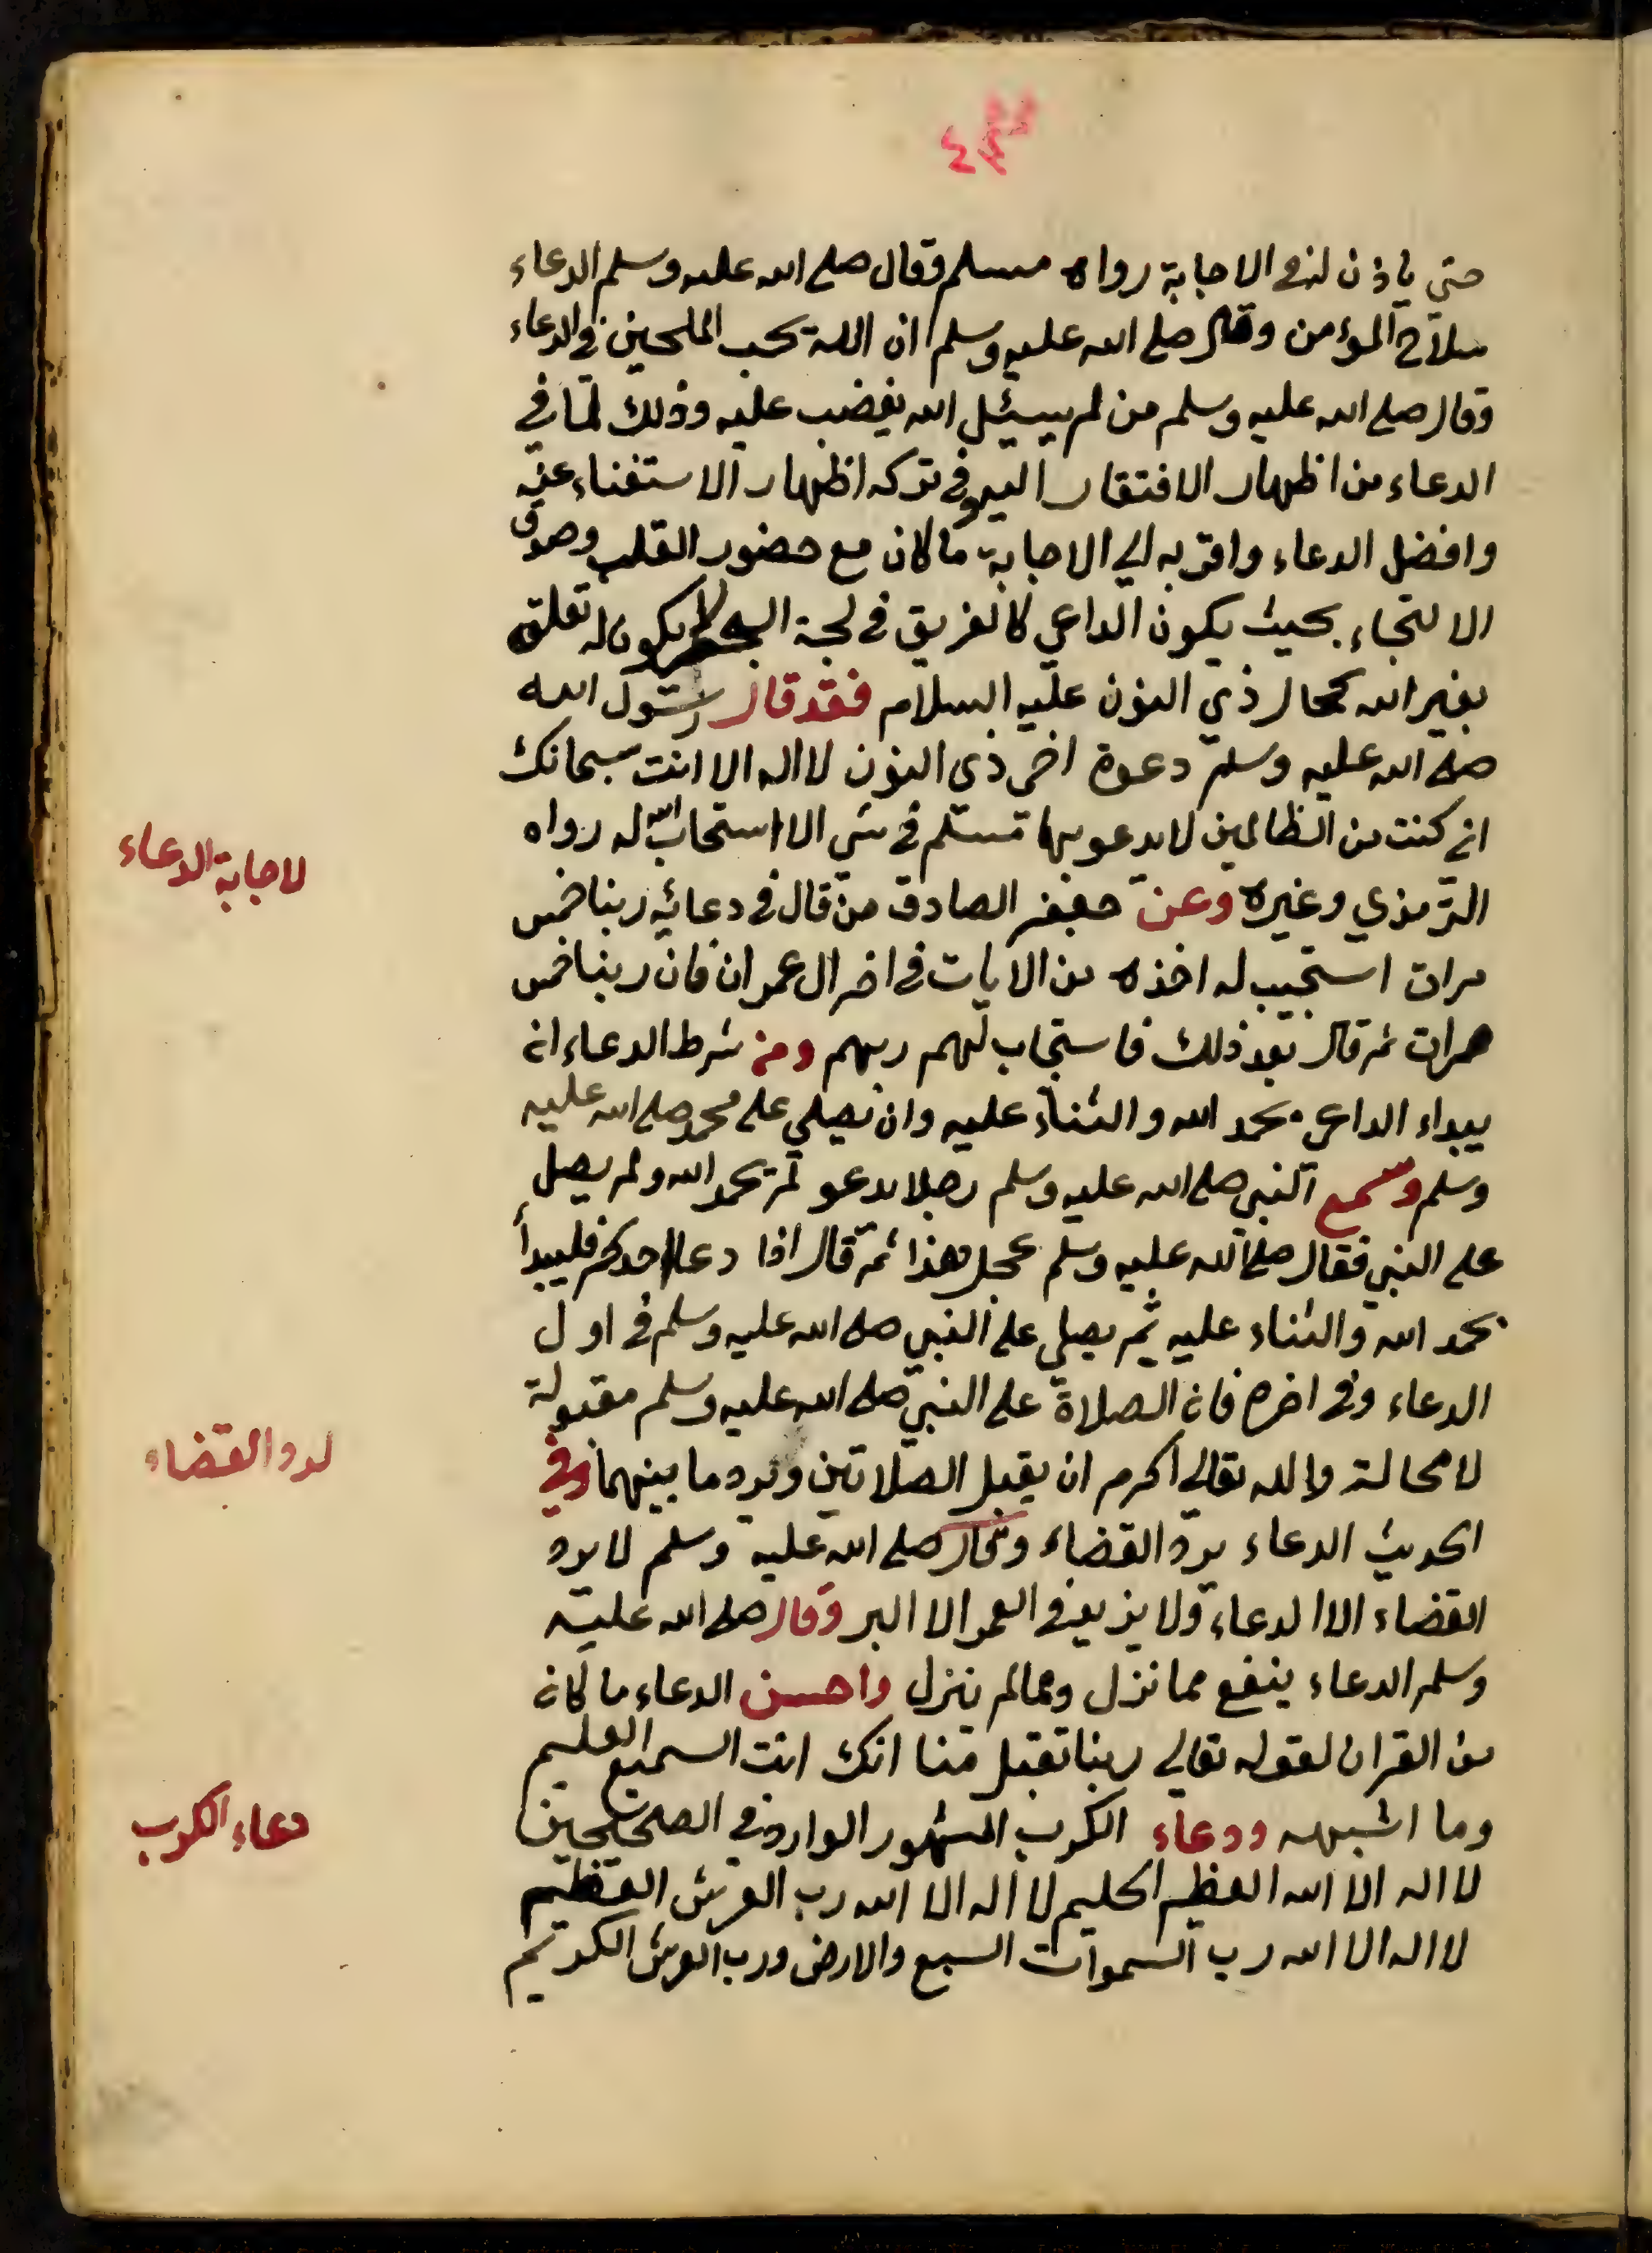 حتى ياذن له في الاجابة رواه مسلم وقال صلى الله عليه وسلم الدعاء
سلاح المؤمن وقال صلى الله عليه وسلم ان الله يحب الملحين في الدعاء
وقال صلى الله عليه وسلم من لم يسئل الله يغضب عليه وذلك لما في
الدعاء من اظهار الافتقار اليه وفي تركه اظهار الاستغناء عنه
وافضل الدعاء واقربه الي الاجابة ما كان مع حضور القلب وصدق
الالتجاء بحيث يكون الداعي كالغريق في لجة البحر لا يكون له تعلق
بغير الله كحال ذي النون عليه السلام فقد قال رسول الله
صلى الله عليه وسلم دعوة اخي ذي النون لا اله الا انت سبحانك
اني كنت من الظالمين لا يدعو بها مسلم في شي الا استجاب الله له رواه
لاجابة الدعاء
الترمذي وغيره وعن جعفر الصادق من قال في دعائه ربنا خمس
مرات استجيب له اخذه من الايات في اخر ال عمران فان ربنا خمس
مرات ثم قال بعد ذلك فاستجاب لهم ربهم ومن شرط الدعاء ان
يبداء الداعي بحمد الله والثناء عليه وان يصلي على محمد صلى الله عليه
وسلم وسمع النبي صلى الله عليه وسلم رجلا يدعو لم يحمد الله ولم يصل
على النبي فقال صلى الله عليه وسلم عجل هذا ثم قال اذا دعا احدكم فليبدأ
بحمد الله والثناء عليه ثم يصلي على النبي صلى الله عليه وسلم في اول
الدعاء وفي اخره فان الصلاة على النبي صلى الله عليه وسلم مقبولة
لا محالة والله تعالي اكرم ان يقبل الصلاتين ويرد ما بينهما وفي
لرد القضاء
الحديث الدعاء يرد القضاء وقال صلى الله عليه وسلم لا يرد
القضاء الا الدعاء ولا يزيد في العمر الا البر وقال صلى الله عليه
وسلم الدعاء ينفع مما نزل ومما لم ينزل واحسن الدعاء ما كان
من القران لقوله تعالي ربنا تقبل منا انك انت السميع العليم
وما اشبهه ودعاء الكرب المشهور الوارد في الصحيحين
دعاء الكرب
لا اله الا الله العظيم الحليم لا اله الا الله رب العرش العظيم
لا اله الا الله رب السموات السبع والارض ورب العرش الكريم